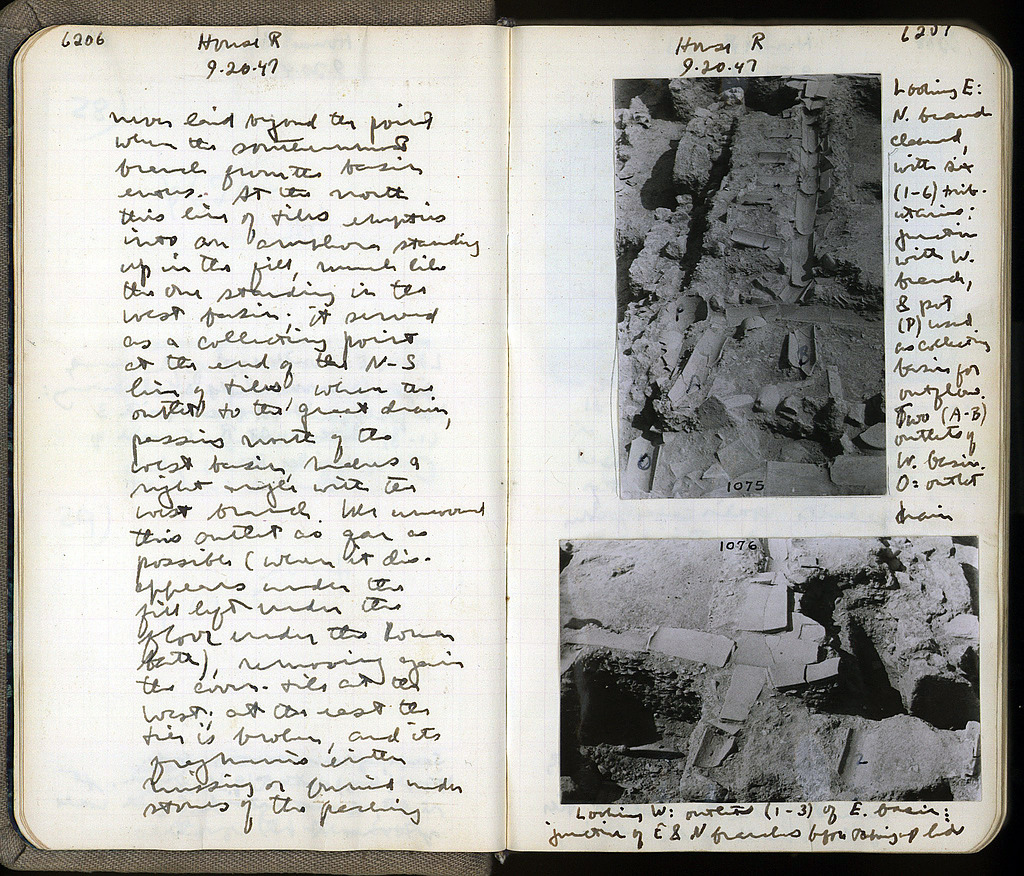 6206
House R
9.20.47
never laid beyond the point
when the southernmost
branch from the basin
enters. At the north
this line of tiles empties
into an amphora standing
up in the fill, much like
the one standing in the
west basin; it served
as a collecting point
at the end of the N-S
line of tiles when the
outlet to the great drain,
passing north of the
west basin, makes a
right angle with the
west branch. We uncovered
this outlet as far as
possible (when it dis-
appears under the
fill left under the
floor under the Roman
bath), removing again
the cover-tile at the
west; at the east the
tile is broken, and its
fragments either
missing or buried under
stones of the packing
6207
House R
9.20.47
Looking E:
N. branch
cleaned,
with six
(1-6) trib-
utaries:
junction
with W.
branch,
& pot
(P) used
as collecting
basin for
outflow.
Two (A-B)
outlets of
W. basin.
O: outlet
drain
1075
1076
Looking W: outlets (1-3) of E. basin:
junction of E & N branches before taking up lid